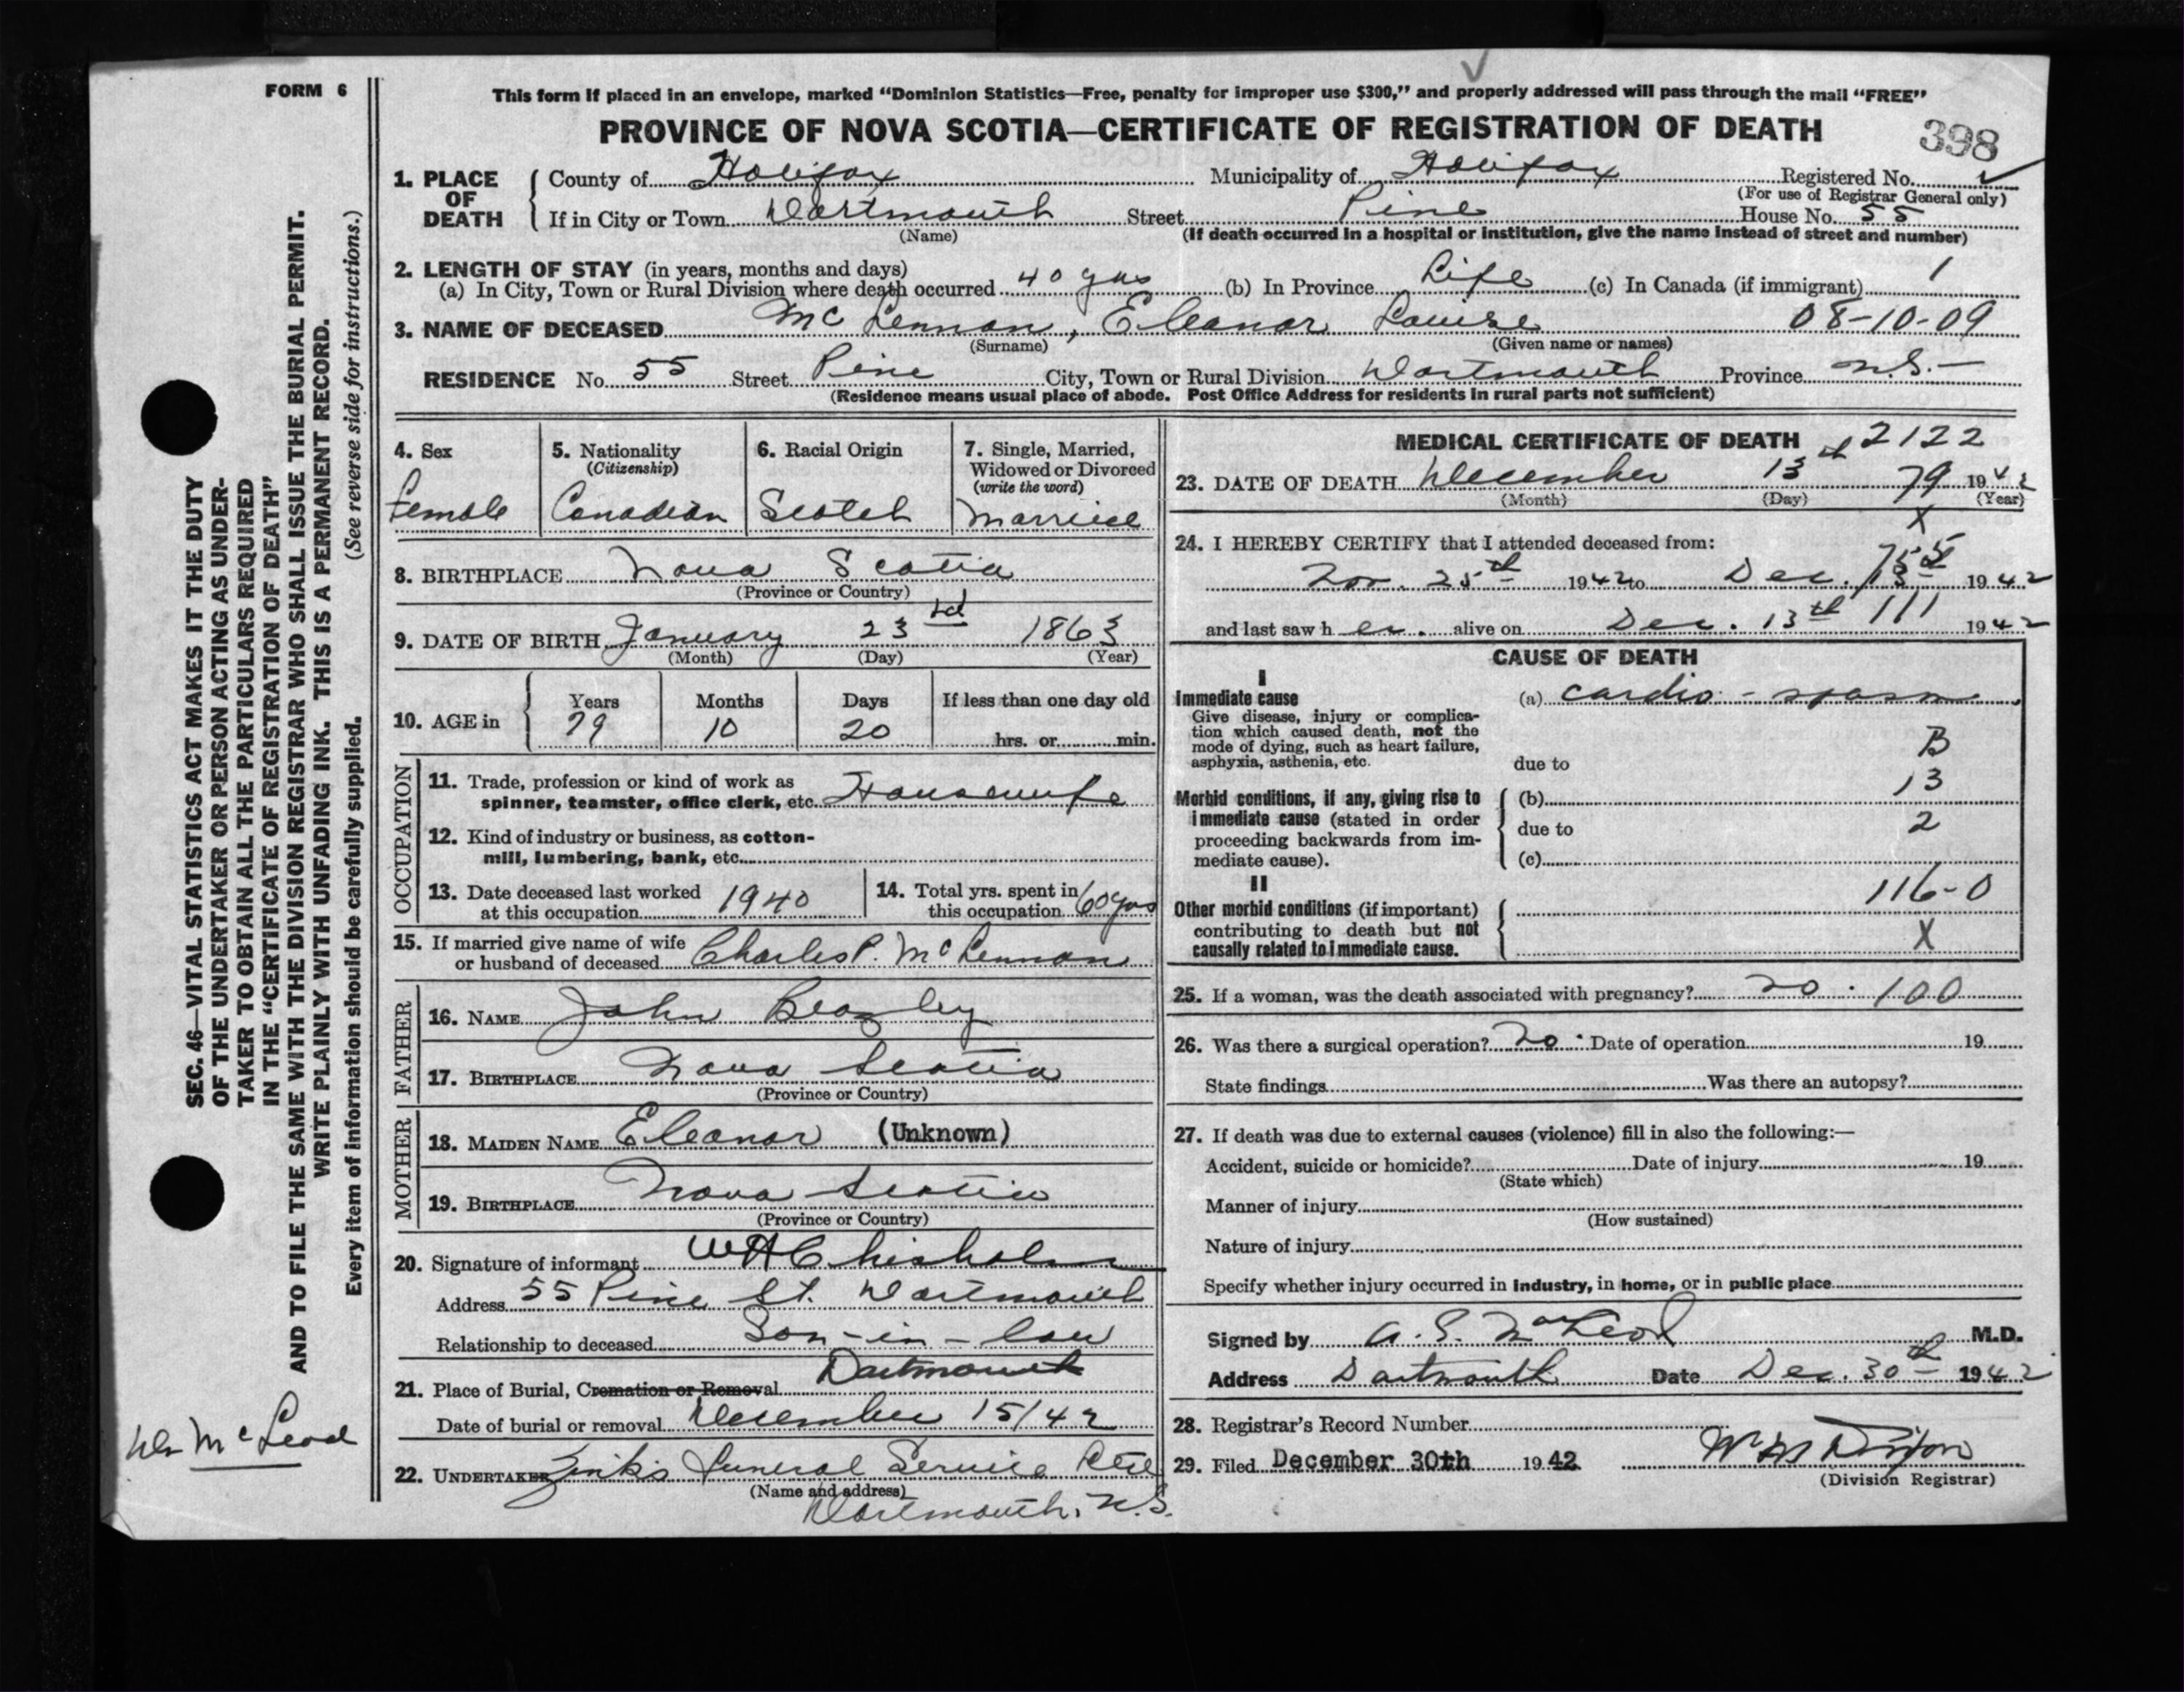 FORM 6
This form if placed in an envelope, marked “Dominion Statistics—Free, penalty for improper use $300,” and properly addressed will pass through the mail “FREE”
PROVINCE OF NOVA SCOTIA—CERTIFICATE OF REGISTRATION OF DEATH
398
1. PLACE OF DEATH
County of Halifax Municipality of Halifax Registered No.
(For use of Registrar General only)
If in City or Town Dartmouth Street Pine House No. 55
(Name) (If death occurred in a hospital or institution, give the name instead of street and number)
2. LENGTH OF STAY (in years, months and days)
(a) In City, Town or Rural Division where death occurred 40 yrs (b) In Province Life (c) In Canada (if immigrant) 1
3. NAME OF DECEASED McLennan, Eleanor Louise 08-10-09
(Surname) (Given name or names)
RESIDENCE No. 55 Street Pine City, Town or Rural Division Dartmouth Province N.S.—
(Residence means usual place of abode. Post Office Address for residents in rural parts not sufficient)
4. Sex
Female
5. Nationality
(Citizenship)
Canadian
6. Racial Origin
Scotch
7. Single, Married,
Widowed or Divorced
(write the word)
Married
8. BIRTHPLACE Nova Scotia
(Province or Country)
9. DATE OF BIRTH January 23rd 1863
(Month) (Day) (Year)
10. AGE in
Years Months Days If less than one day old
79 10 20 hrs. or min.
OCCUPATION
11. Trade, profession or kind of work as
spinner, teamster, office clerk, etc. Housewife
12. Kind of industry or business, as cotton-
mill, lumbering, bank, etc.
13. Date deceased last worked
at this occupation 1940
14. Total yrs. spent in
this occupation 60 yrs
15. If married give name of wife
or husband of deceased Charles P. McLennan
FATHER
16. NAME John Beazley
17. BIRTHPLACE Nova Scotia
(Province or Country)
MOTHER
18. MAIDEN NAME Eleanor (Unknown)
19. BIRTHPLACE Nova Scotia
(Province or Country)
20. Signature of informant W H Chisholm
Address 55 Pine St. Dartmouth
Relationship to deceased Son-in-law
21. Place of Burial, Cremation or Removal Dartmouth
Date of burial or removal December 15/42
22. UNDERTAKER Zink's Funeral Service
(Name and address)
Dartmouth, N.S.
MEDICAL CERTIFICATE OF DEATH 2122
23. DATE OF DEATH December 13th 79 1942
(Month) (Day) (Year)
X
24. I HEREBY CERTIFY that I attended deceased from:
Nov. 25th 1942 to Dec. 1942
and last saw h er. alive on Dec. 13th 111 1942
CAUSE OF DEATH
I
Immediate cause (a) cardio-spasm
Give disease, injury or complica-
tion which caused death, not the
mode of dying, such as heart failure,
asphyxia, asthenia, etc.
due to B
Morbid conditions, if any, giving rise to
immediate cause (stated in order
proceeding backwards from im-
mediate cause).
(b) 13
due to 2
(c)
II
Other morbid conditions (if important)
contributing to death but not
causally related to immediate cause.
116-0
X
25. If a woman, was the death associated with pregnancy? no. 100
26. Was there a surgical operation? no. Date of operation 19
State findings Was there an autopsy?
27. If death was due to external causes (violence) fill in also the following:—
Accident, suicide or homicide? Date of injury 19
(State which)
Manner of injury
(How sustained)
Nature of injury
Specify whether injury occurred in industry, in home, or in public place
Signed by A. S. MacLeod M.D.
Address Dartmouth Date Dec. 30th 1942
28. Registrar's Record Number
29. Filed December 30th 1942
(Division Registrar)
SEC. 46—VITAL STATISTICS ACT MAKES IT THE DUTY
OF THE UNDERTAKER OR PERSON ACTING AS UNDER-
TAKER TO OBTAIN ALL THE PARTICULARS REQUIRED
IN THE “CERTIFICATE OF REGISTRATION OF DEATH”
AND TO FILE THE SAME WITH THE DIVISION REGISTRAR WHO SHALL ISSUE THE BURIAL PERMIT.
WRITE PLAINLY WITH UNFADING INK. THIS IS A PERMANENT RECORD.
Every item of information should be carefully supplied. (See reverse side for instructions.)
Dr McLeod